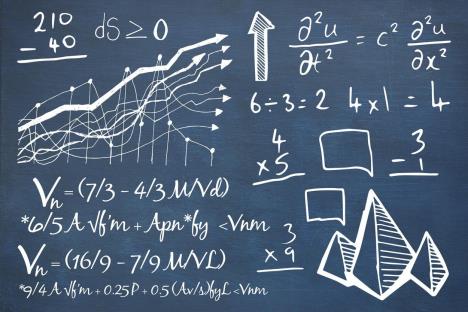 210
- 40
dS ≥ 0
∂²u/∂t² = c² ∂²u/∂x²
6 ÷ 3 = 2 4 x 1 = 4
4
x 5
3
- 1
Vn = (7/3 - 4/3 M/Vd)
*6/5 A √f'm + Apn*fy < Vnm
3
x 9
Vn = (16/9 - 7/9 M/VL)
*9/4 A √f'm + 0.25P + 0.5 (Av/s)fyL < Vnm